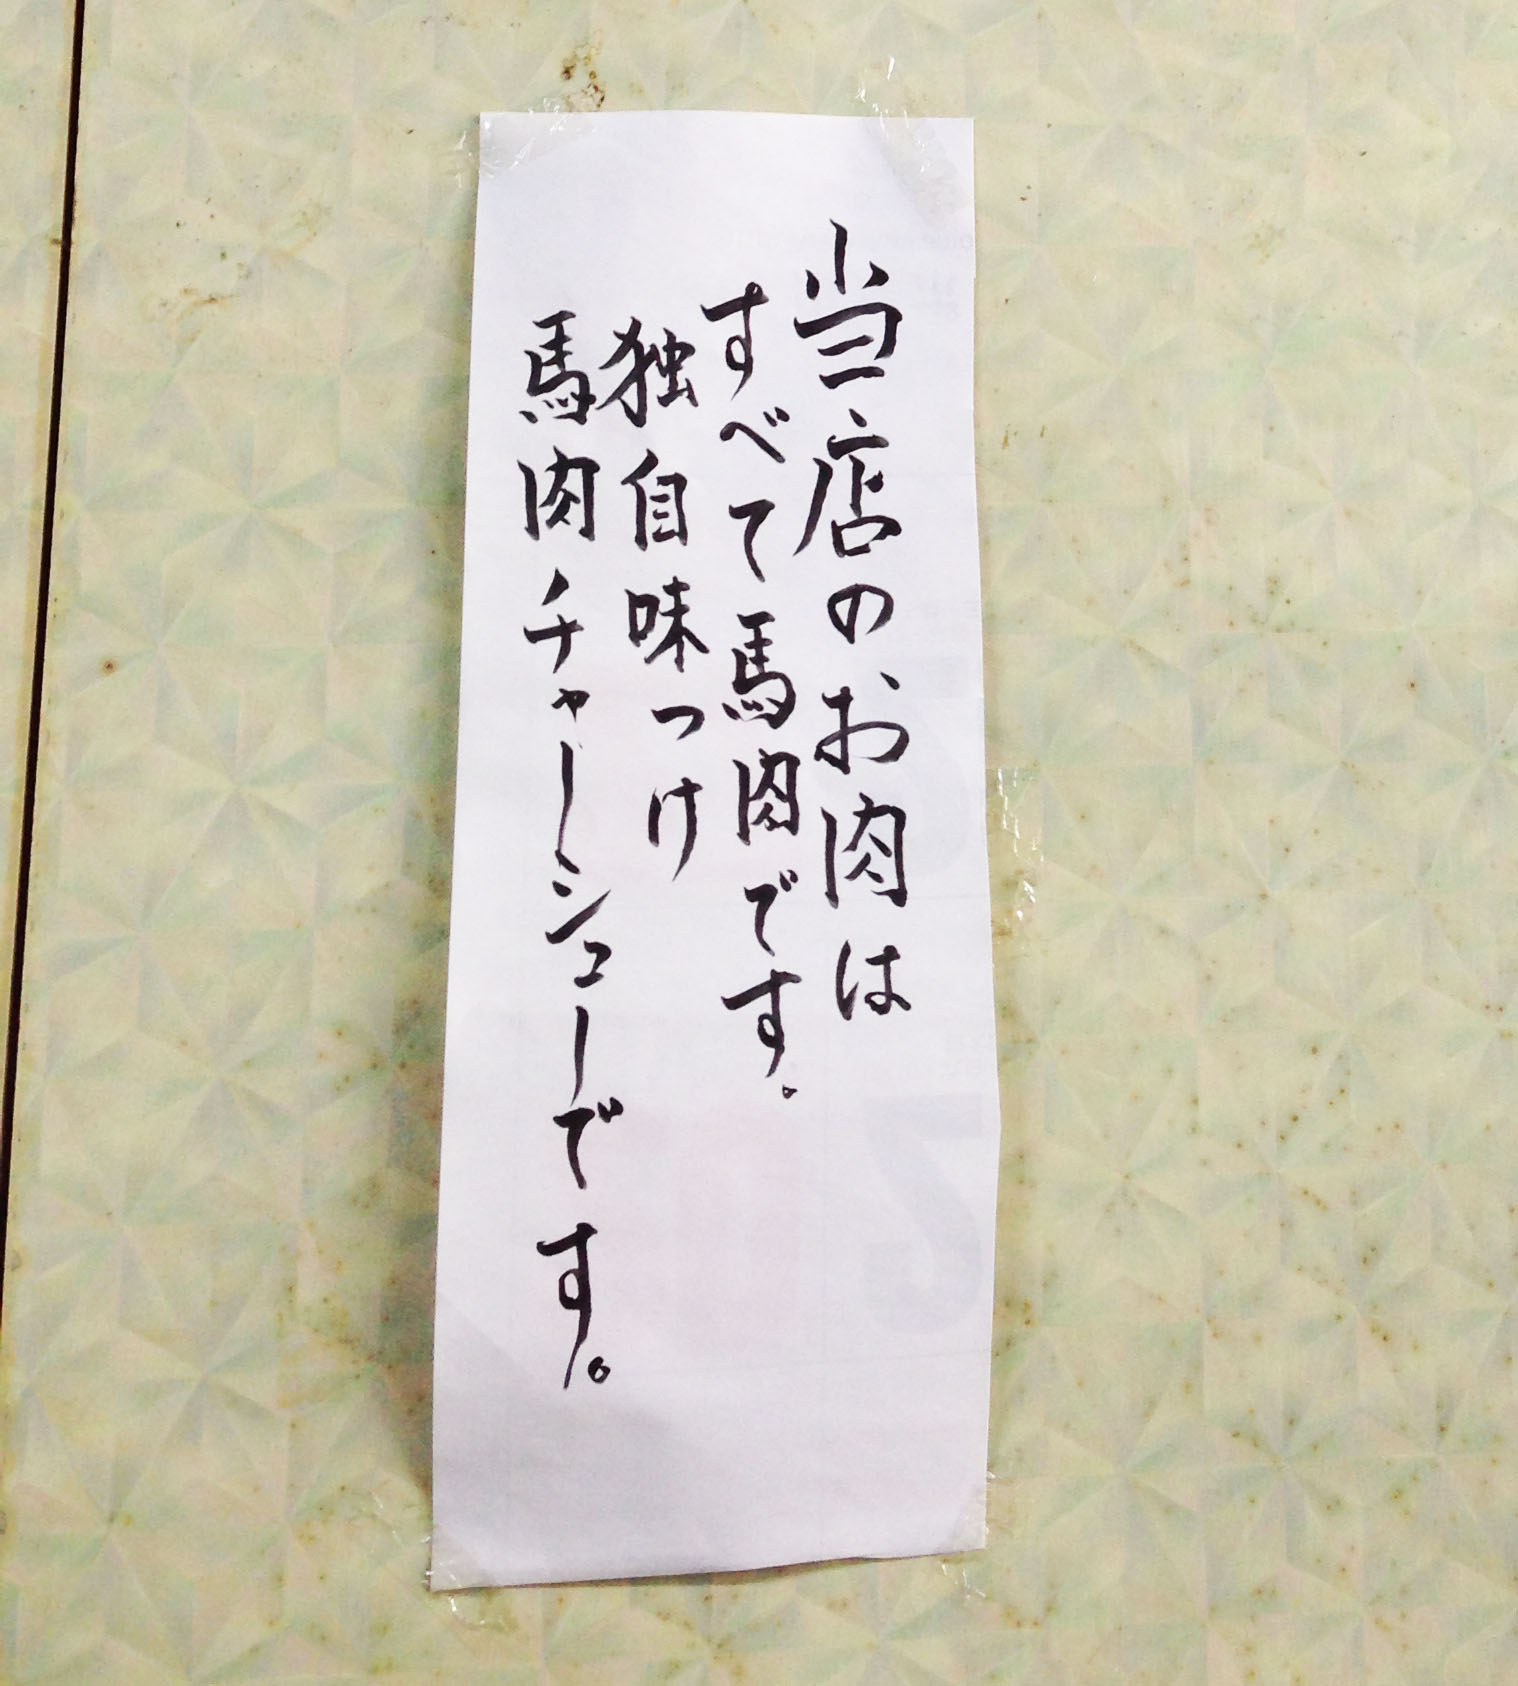 当店のお肉は
すべて馬肉です。
独自味つけ
馬肉チャーシューです。